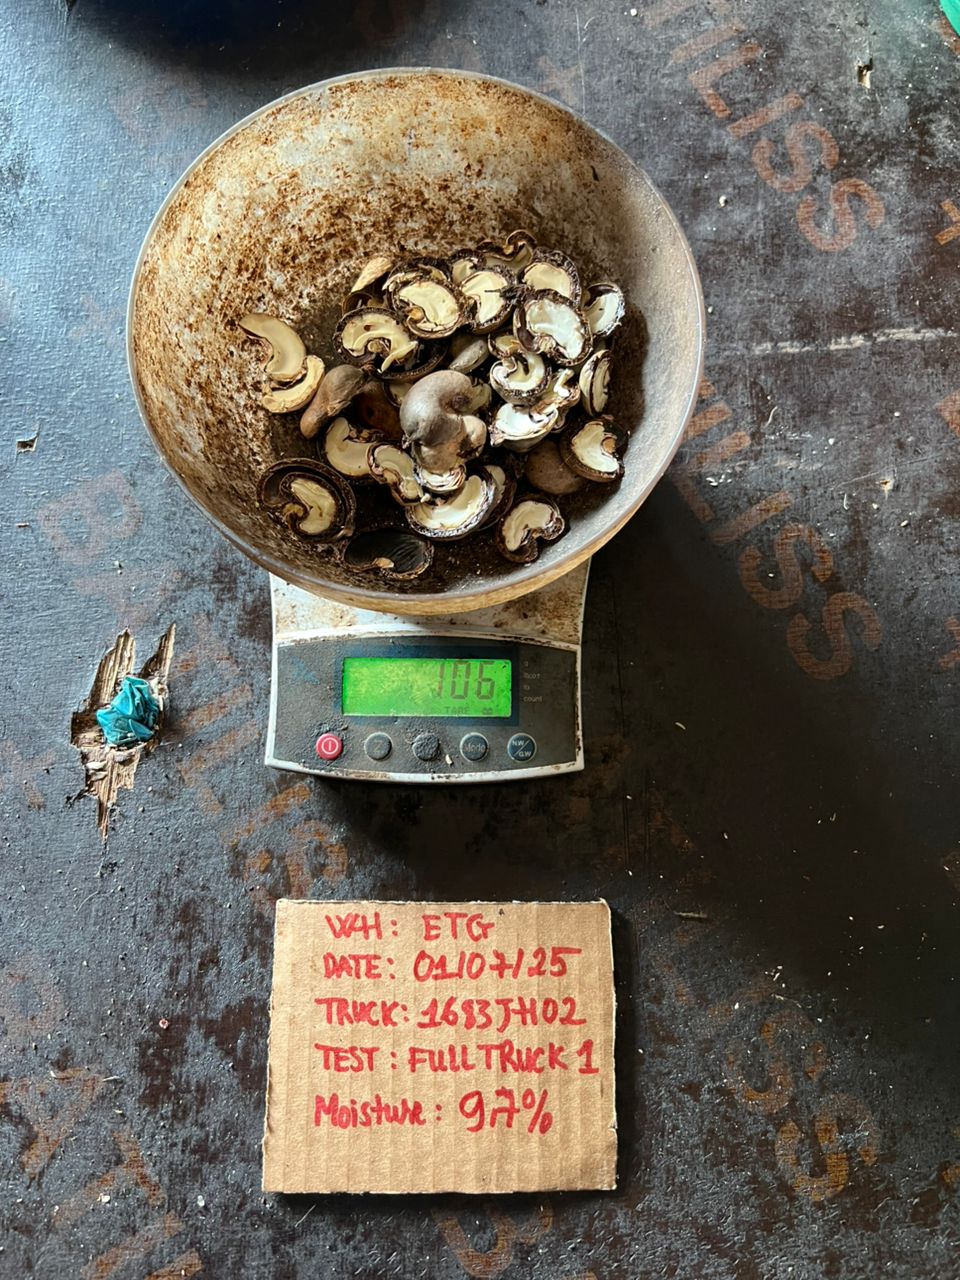 106
TARE
g
count
Mode
N.W/
G.W
W4H: ETG
DATE: 01/07/25
TRUCK: 1683JH02
TEST: FULL TRUCK 1
Moisture: 9.7%